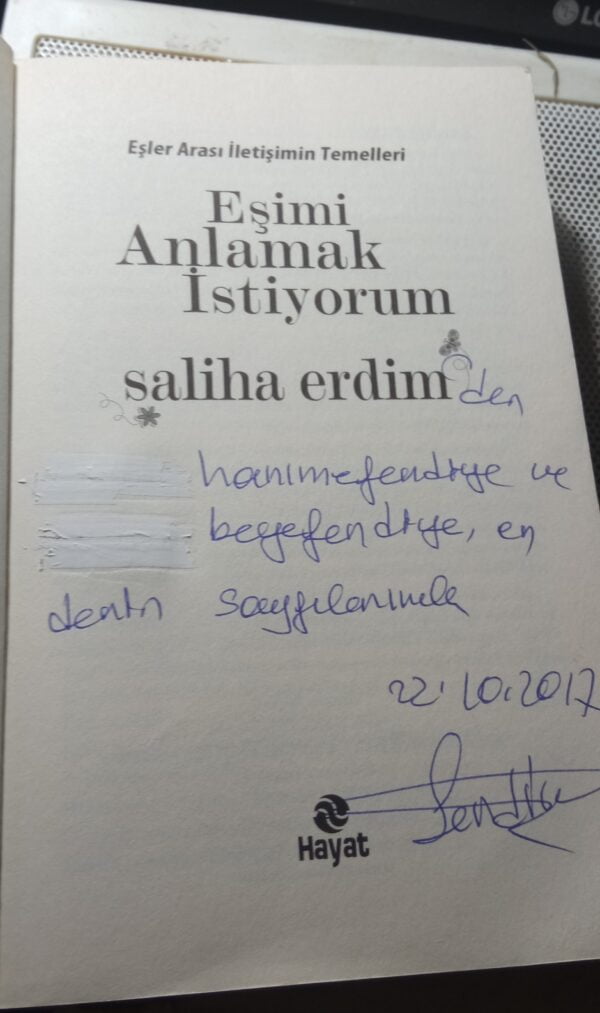 LG
Eşler Arası İletişimin Temelleri
Eşimi
Anlamak
İstiyorum
saliha erdim den
hanımefendiye ve
beyefendiye, en
derin saygılarımla
22.10.2017
Hayat